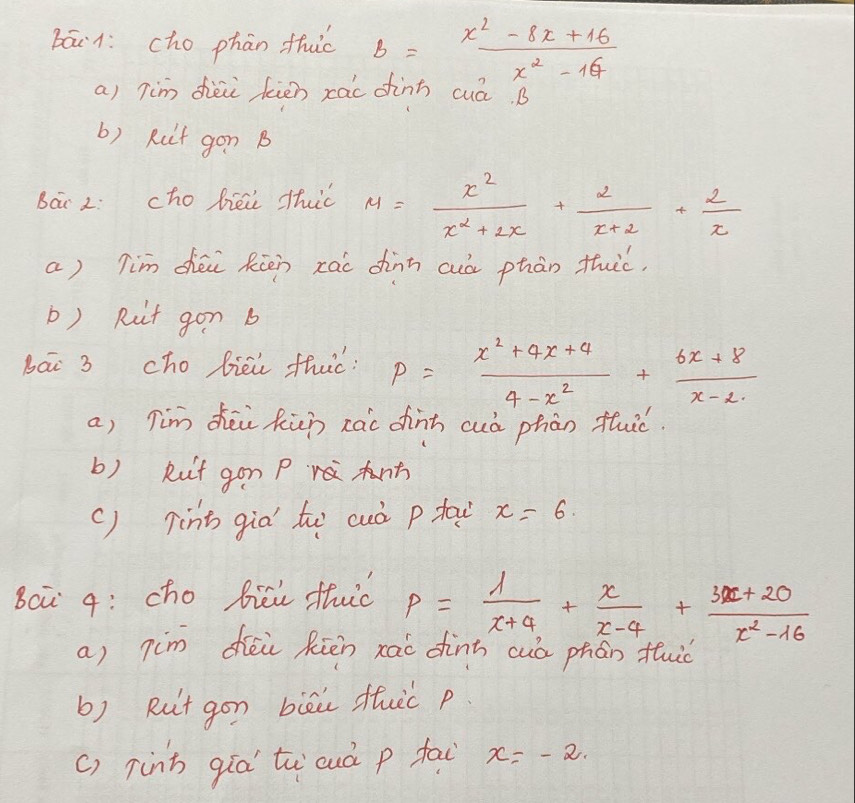 Bài 1: Cho phân thức B = (x² - 8x + 16)/(x² - 16)
a) Tìm điều kiện xác định của B
b) Rút gọn B
Bài 2: Cho biểu thức M = x²/(x² + 2x) + 2/(x+2) + 2/x
a) Tìm điều kiện xác định của phân thức.
b) Rút gọn B
Bài 3 Cho biểu thức: P = (x² + 4x + 4)/(4 - x²) + (6x + 8)/(x - 2).
a) Tìm điều kiện xác định của phân thức.
b) Rút gọn P
c) Tính giá trị của P tại x = 6.
Bài 4: Cho biểu thức P = 1/(x+4) + x/(x-4) + (3x + 20)/(x² - 16)
a) Tìm điều kiện xác định của phân thức
b) Rút gọn biểu thức P.
c) Tính giá trị của P tại x = - 2.